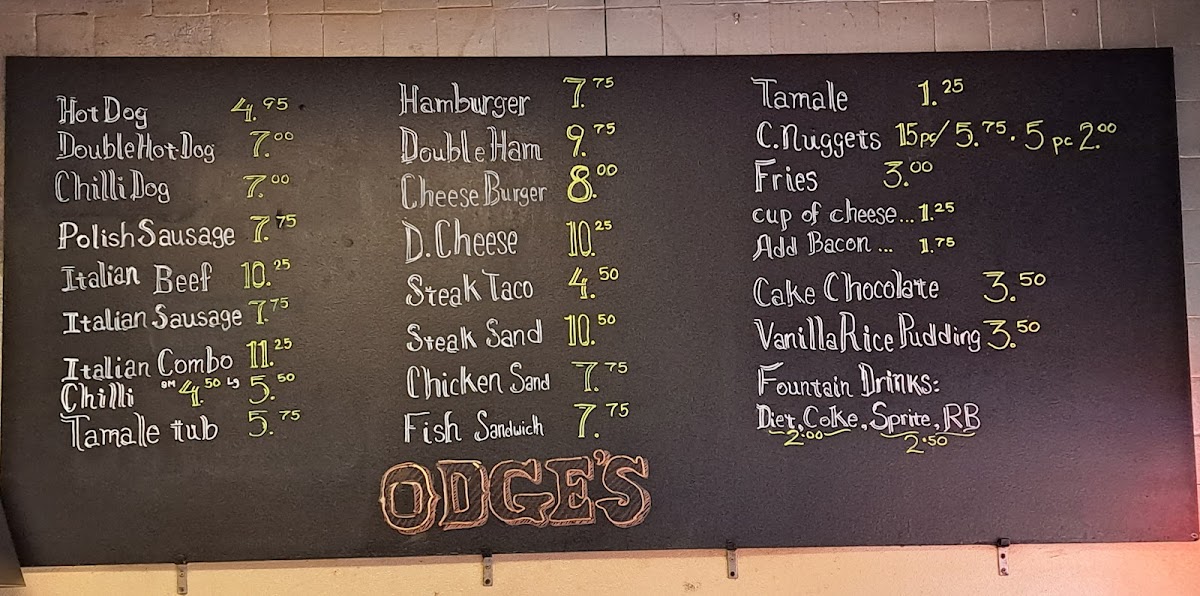 Hot Dog 4.95
Double Hot Dog 7.00
Chilli Dog 7.00
Polish Sausage 7.75
Italian Beef 10.25
Italian Sausage 7.75
Italian Combo 11.25
Chilli SM 4.50 LG 5.50
Tamale tub 5.75
Hamburger 7.75
Double Ham 9.75
Cheese Burger 8.00
D. Cheese 10.25
Steak Taco 4.50
Steak Sand 10.50
Chicken Sand 7.75
Fish Sandwich 7.75
Tamale 1.25
C. Nuggets 15pc/ 5.75 . 5 pc 2.00
Fries 3.00
cup of cheese... 1.25
Add Bacon ... 1.75
Cake Chocolate 3.50
Vanilla Rice Pudding 3.50
Fountain Drinks:
Diet, Coke, Sprite, RB
2.00 2.50
ODGE'S